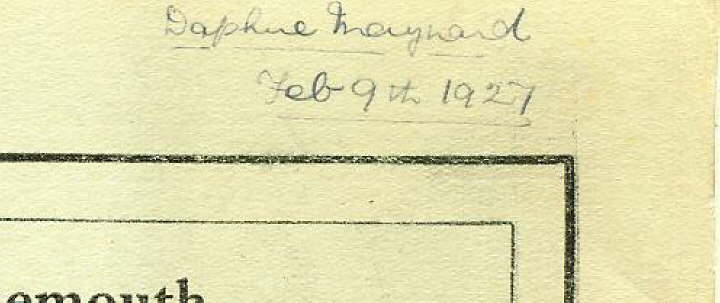 Daphne Maynard
Feb 9th 1927
emouth